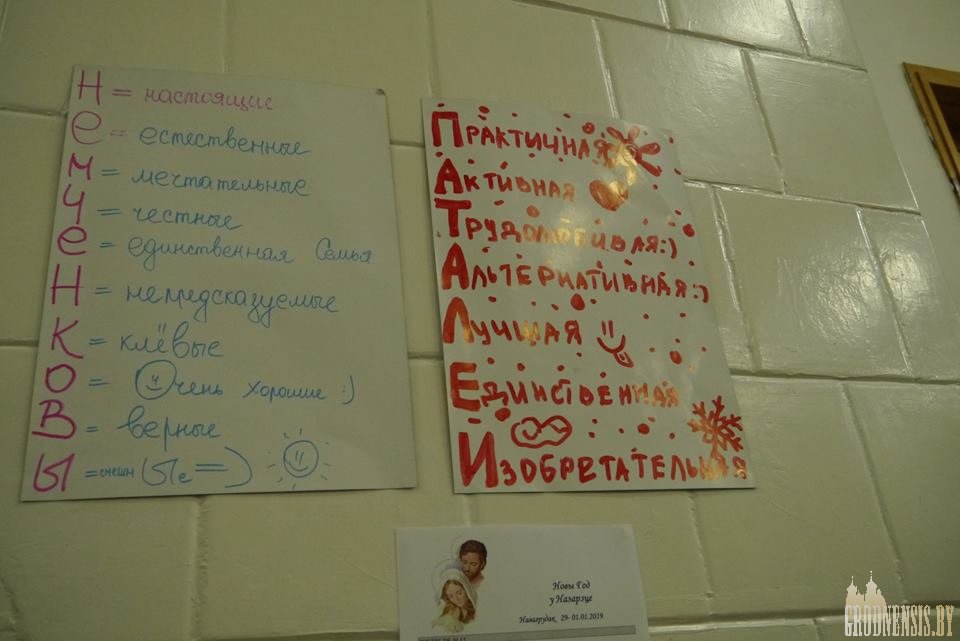 Н = настоящие
е = естественные
м = мечтательные
ч = честные
е = единственная Семья
Н = непредсказуемые
К = клёвые
О = Очень хорошие :)
В = верные
Ы = смешн Ые =)
Практичная
Активная
Трудолюбивая:)
Альтернативная:)
Лучшая
Единственная
Изобретательная
Новы Год
у Назарэце
Навагрудак, 29- 01.01.2019
GRODNENSIS.BY